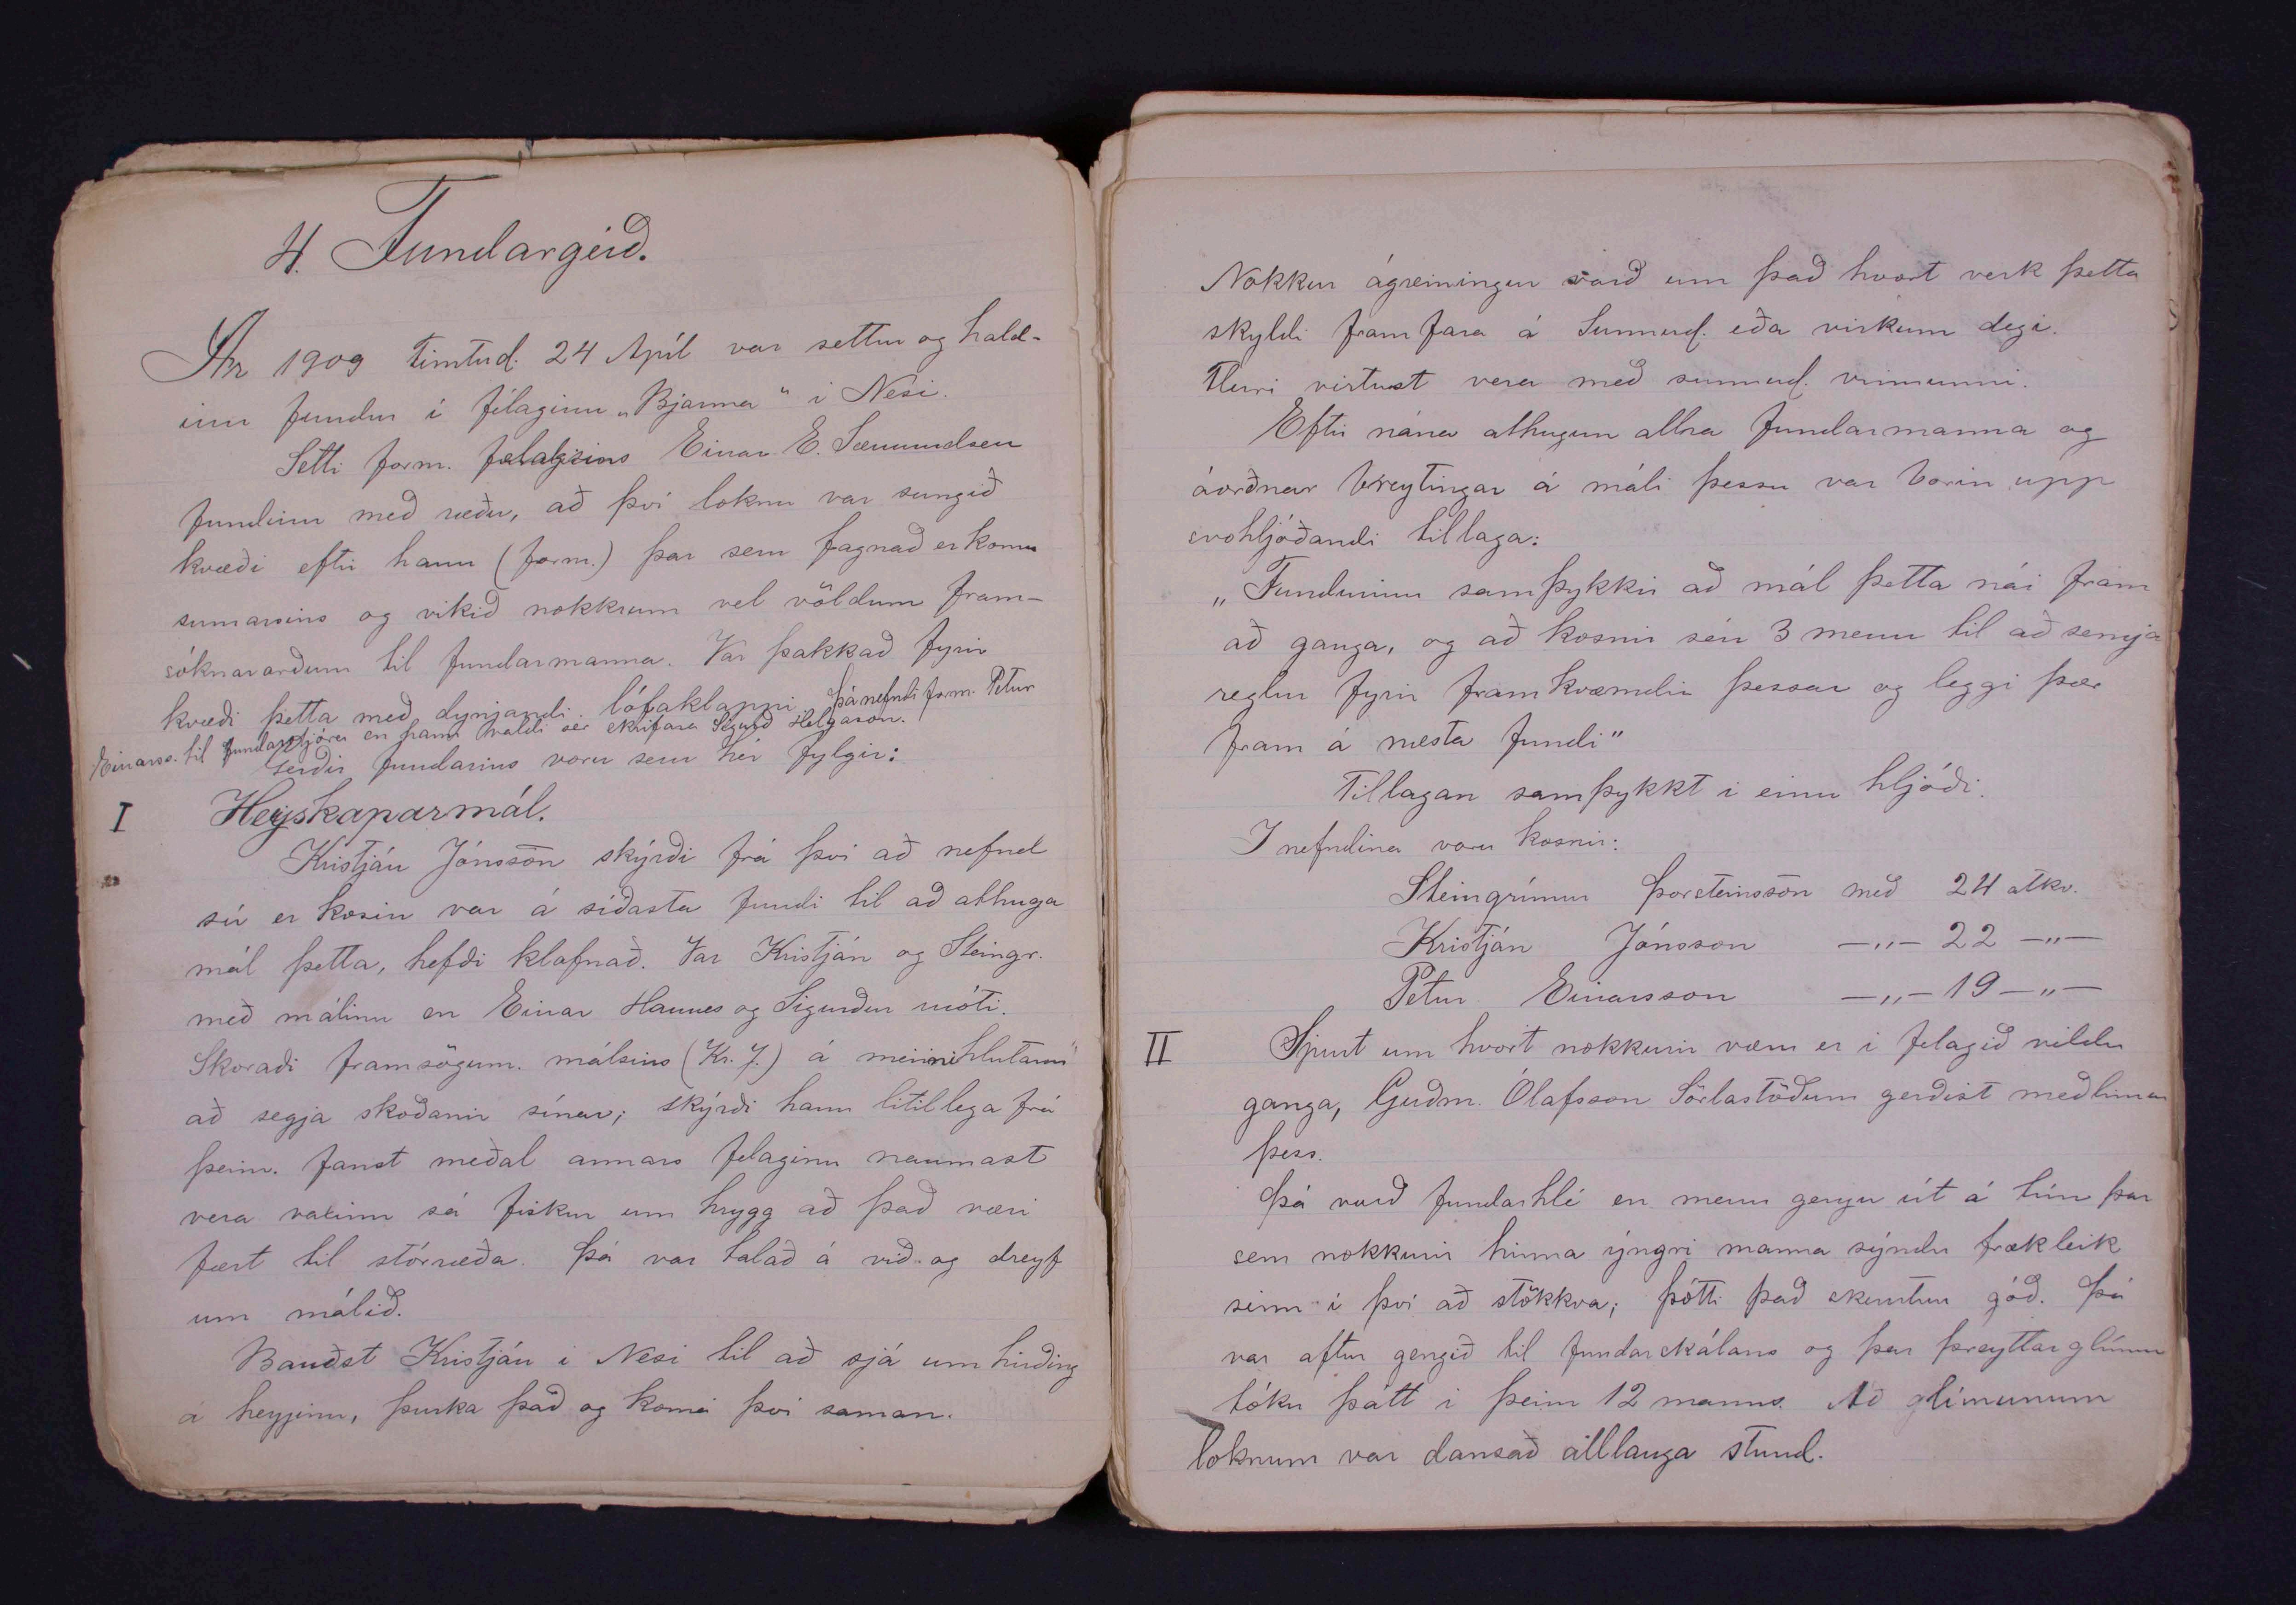 4. Fundargerð.
Ár 1909 fimtud. 24 Apíl var settur og hald-
inn fundur í félaginu „Bjarma" í Nesi.
Setti form. felagsins Einar E. Sæmundsen
fundinn með ræðu, að því loknu var sungið
kvæði eftir hann (form.) þar sem fagnað er komu
sumarsins og vikið nokkrum vel völdum fram-
sóknarorðum til fundarmanna. Var þakkað fyrir
kvæði þetta með dynjandi lófaklappi. Þá nefndi form. Petur
Einarss. til fundarstjóra en hann valdi sér skrifara Sigurð Helgason.
Gerðir fundarins voru sem hér fylgir:
I Heyskaparmál.
Kristján Jónsson skýrði frá því að nefnd
sú er kosin var á síðasta fundi til að athuga
mál þetta, hefði klofnað. Var Kristján og Steingr.
með málinu en Einar Hannes og Sigurður móti.
Skoraði framsögum. málsins (Kr. J.) á meiri hlutann
að segja skoðanir sínar; skýrði hann lítillega frá
þeim. Fanst meðal annars felaginu naumast
vera vaxinn sá fiskur um hrygg að það væri
fært til stórræða. Þá var talað á við og dreyf
um málið.
Bauðst Kristján í Nesi til að sjá um hirðing
á heyjinu, þurka það og koma því saman.
Nokkur ágreiningur varð um það hvort verk þetta
skyldi fram fara á Sunnud. eða virkum degi.
Fleiri virtust vera með sunnud. vinnunni.
Eftir nána athugun allra fundarmanna og
áorðnar breytingar á máli þessu var borin upp
svohljóðandi tillaga:
„Fundurinn samþykkir að mál þetta nái fram
að ganga, og að kosnir séu 3 menn til að semja
reglur fyrir framkvæmdir þessar og leggi þær
fram á næsta fundi"
Tillagan samþykkt í einu hljóði.
I nefndina voru kosnir:
Steingrímur Þorsteinsson með 24 atkv.
Kristján Jónsson —„— 22 —„—
Petur Einarsson —„— 19 —„—
II Spurt um hvort nokkurir væru er í felagið vildu
ganga, Guðm. Ólafsson Sörlastöðum gerðist meðlimur
þess.
Þá varð fundarhlé en menn gengu út á tún þar
sem nokkurir hinna ýngri manna sýndu frækleik
sinn í því að stökkva; þótti það skemtun góð. Þá
var aftur gengið til fundarskálans og þar þreyttar glímur
tóku þátt í þeim 12 manns. Að glímunum
loknum var dansað alllanga stund.